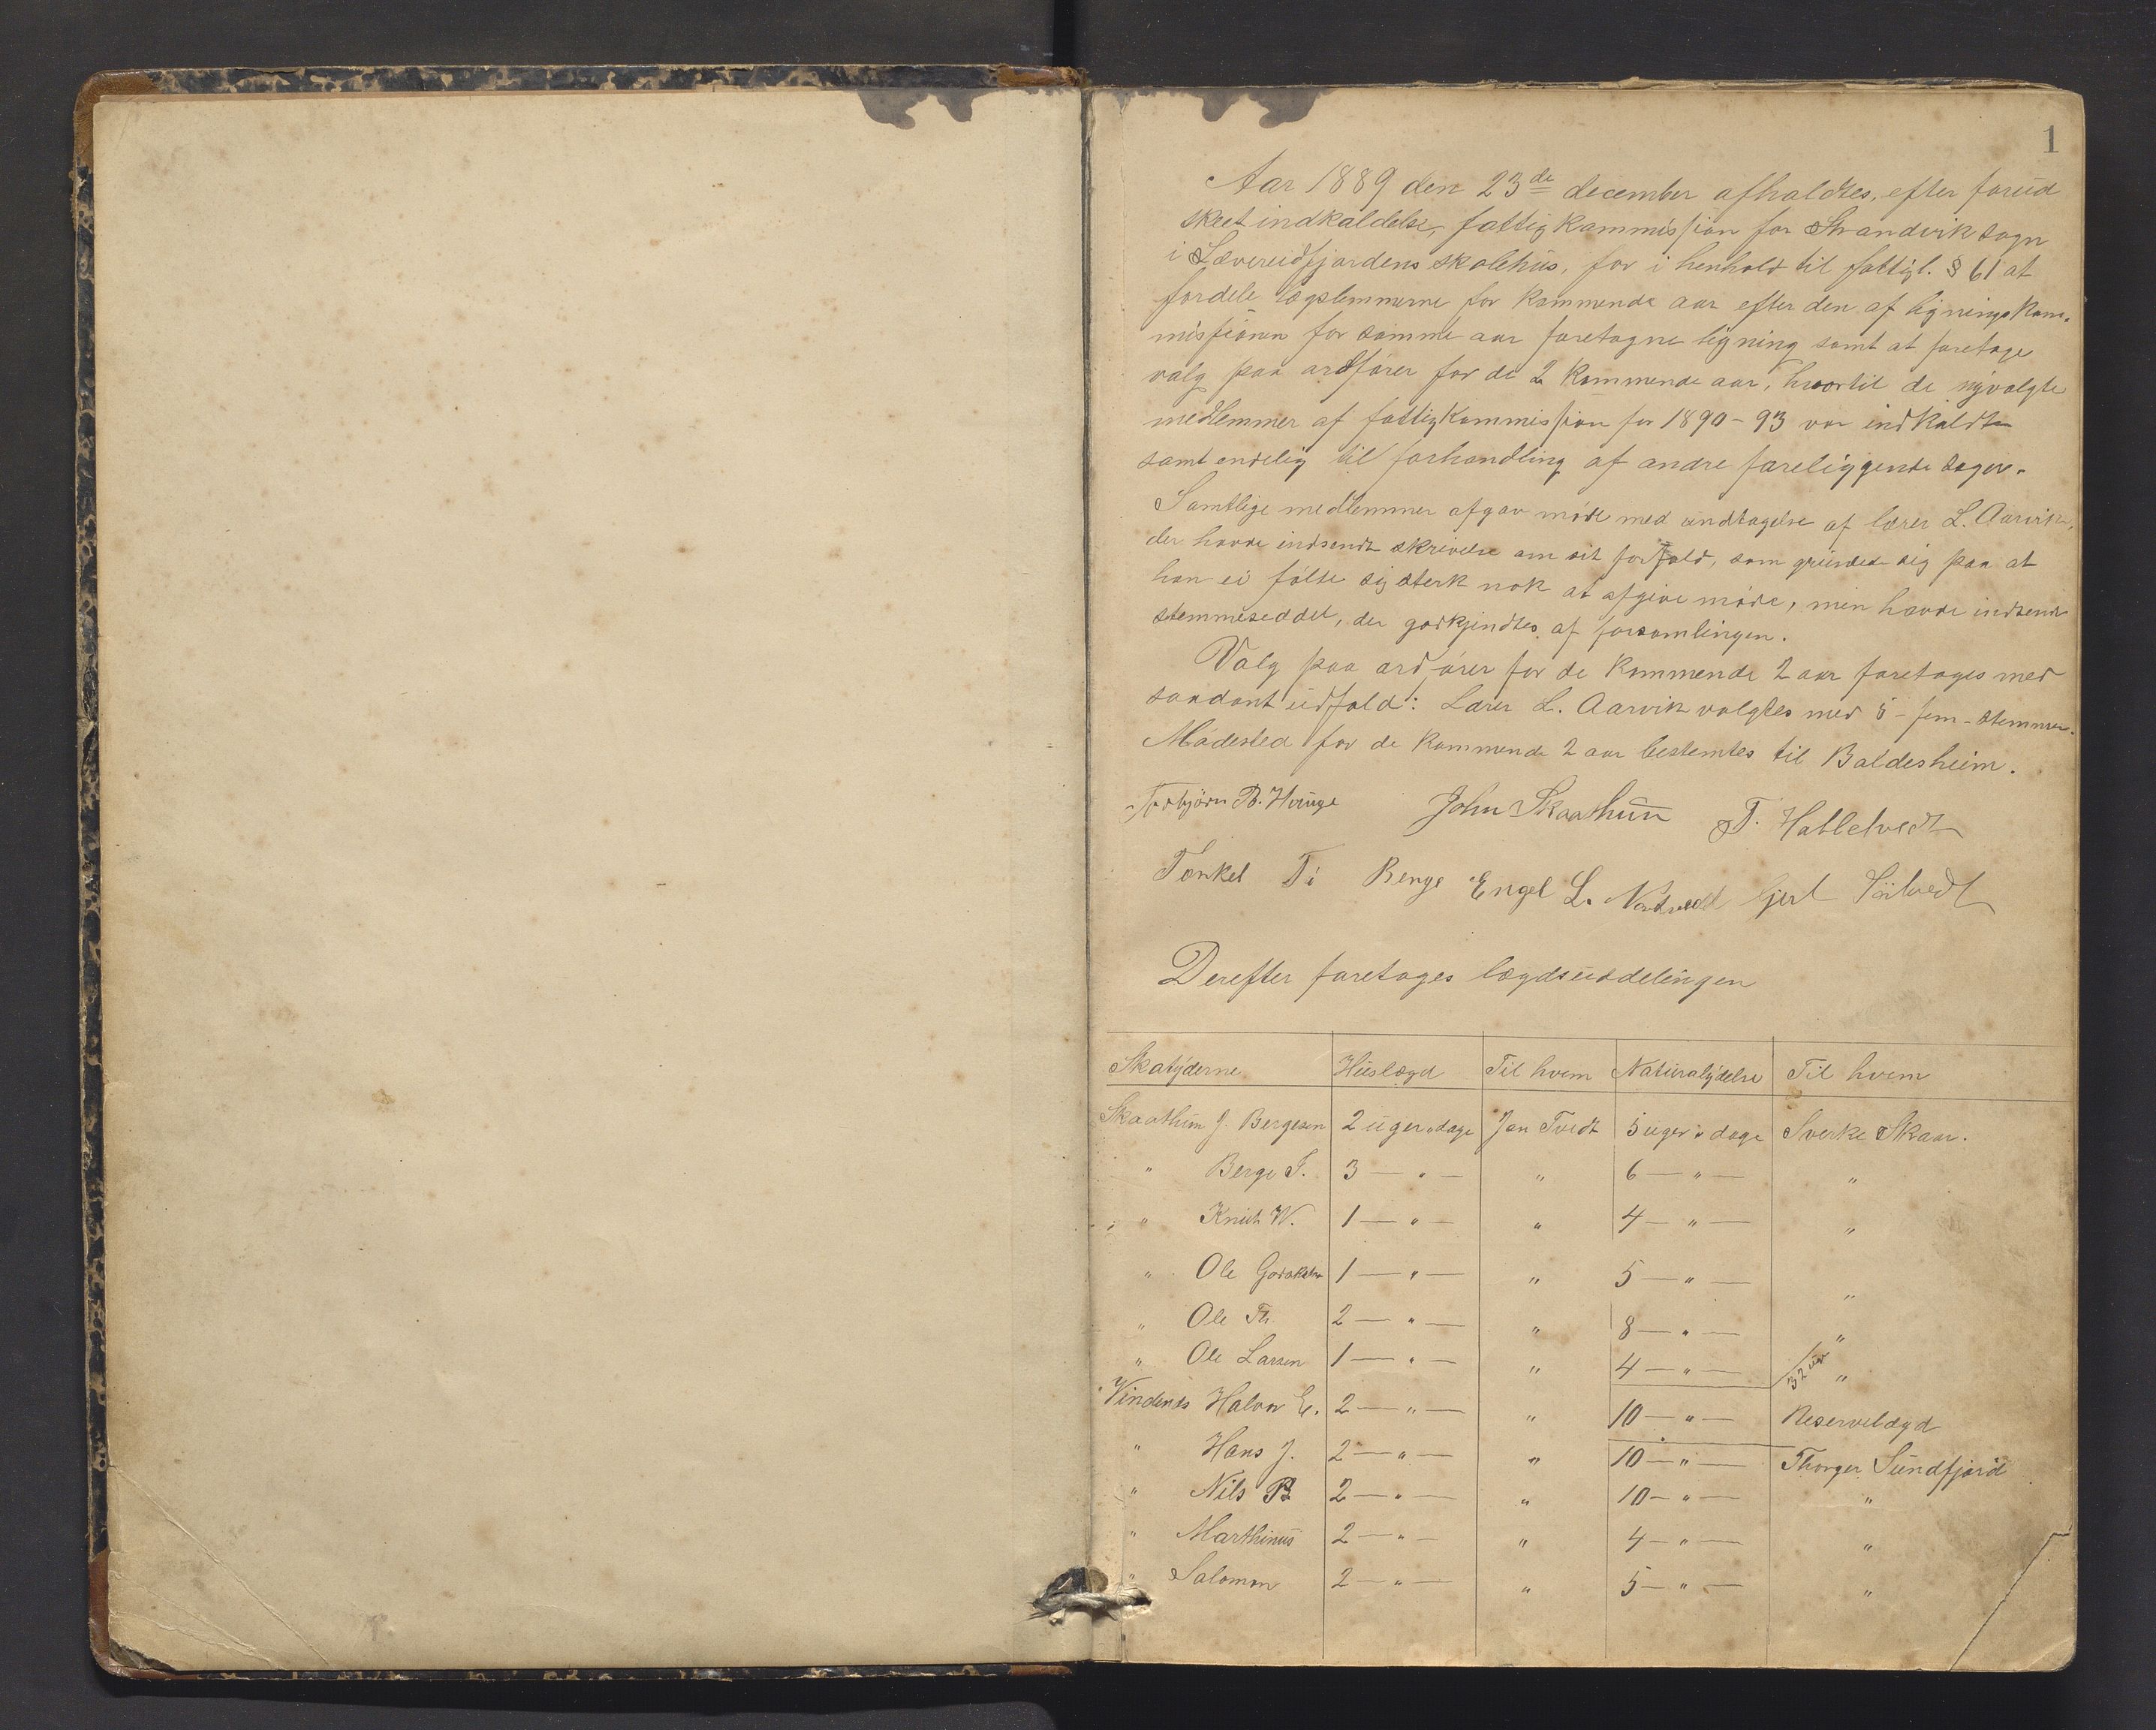 1
Aar 1889 den 23de december afholdtes, efter forud
skeet indkaldelse, fattigkommission for Strandvik sogn
i Sævereidfjordens skolehus, for i henhold til fattigl. § 61 at
fordele lægslemmerne for kommende aar efter den af ligningskom-
missionen for samme aar foretagne ligning samt at foretage
valg paa ordfører for de 2 kommende aar, hvortil de nyvalgte
medlemmer af fattigkommission for 1890-93 var indkaldte
samt endelig til forhandling af andre foreliggende sager.
Samtlige medlemmer afgav møde med undtagelse af lærer L. Aarvik,
der havde indsendt skrivelse om sit forfald, som grunded sig paa at
han ei følte sig sterk nok at afgive møde, men havde indsendt
stemmeseddel, der godkjendtes af forsamlingen.
Valg paa ordfører for de kommende 2 aar foretages med
saadant udfald: Lærer L. Aarvik valgtes med 5 - fem - stemmer.
Mødested for de kommende 2 aar bestemtes til Baldesheim.
Torbjørn B. Hauge John Skaathun T. Hatletvedt
Tørkel Ti Berge Engel L. Nordtvedt Gjert
Derefter foretages lægdsuddelingen
Skatyderne Huslægd Til hvem Naturalydelse Til hvem
Skaathun J. Bergesen 2 uger " dage Jan Tvedt 5 uger " dage Sverke Skaar.
" Berge T. 3 — " — " 6 — " — "
" Knut W. 1 — " — " 4 — " — "
" Ole 1 — " — " 5 — " — "
" Ole Th. 2 — " — " 8 — " — "
" Ole Larsen 1 — " — " 4 — " — / 32 "
Vindenes Halvor E. 2 — " — " 10 — " — Reservelægd
" Hans J. 2 — " — " 10 — " — Thorger Sundfjord
" Nils B 2 — " — " 10 — " — "
" Marthinus 2 — " — " 4 — " — "
" Salomon 2 — " — " 5 — " — "